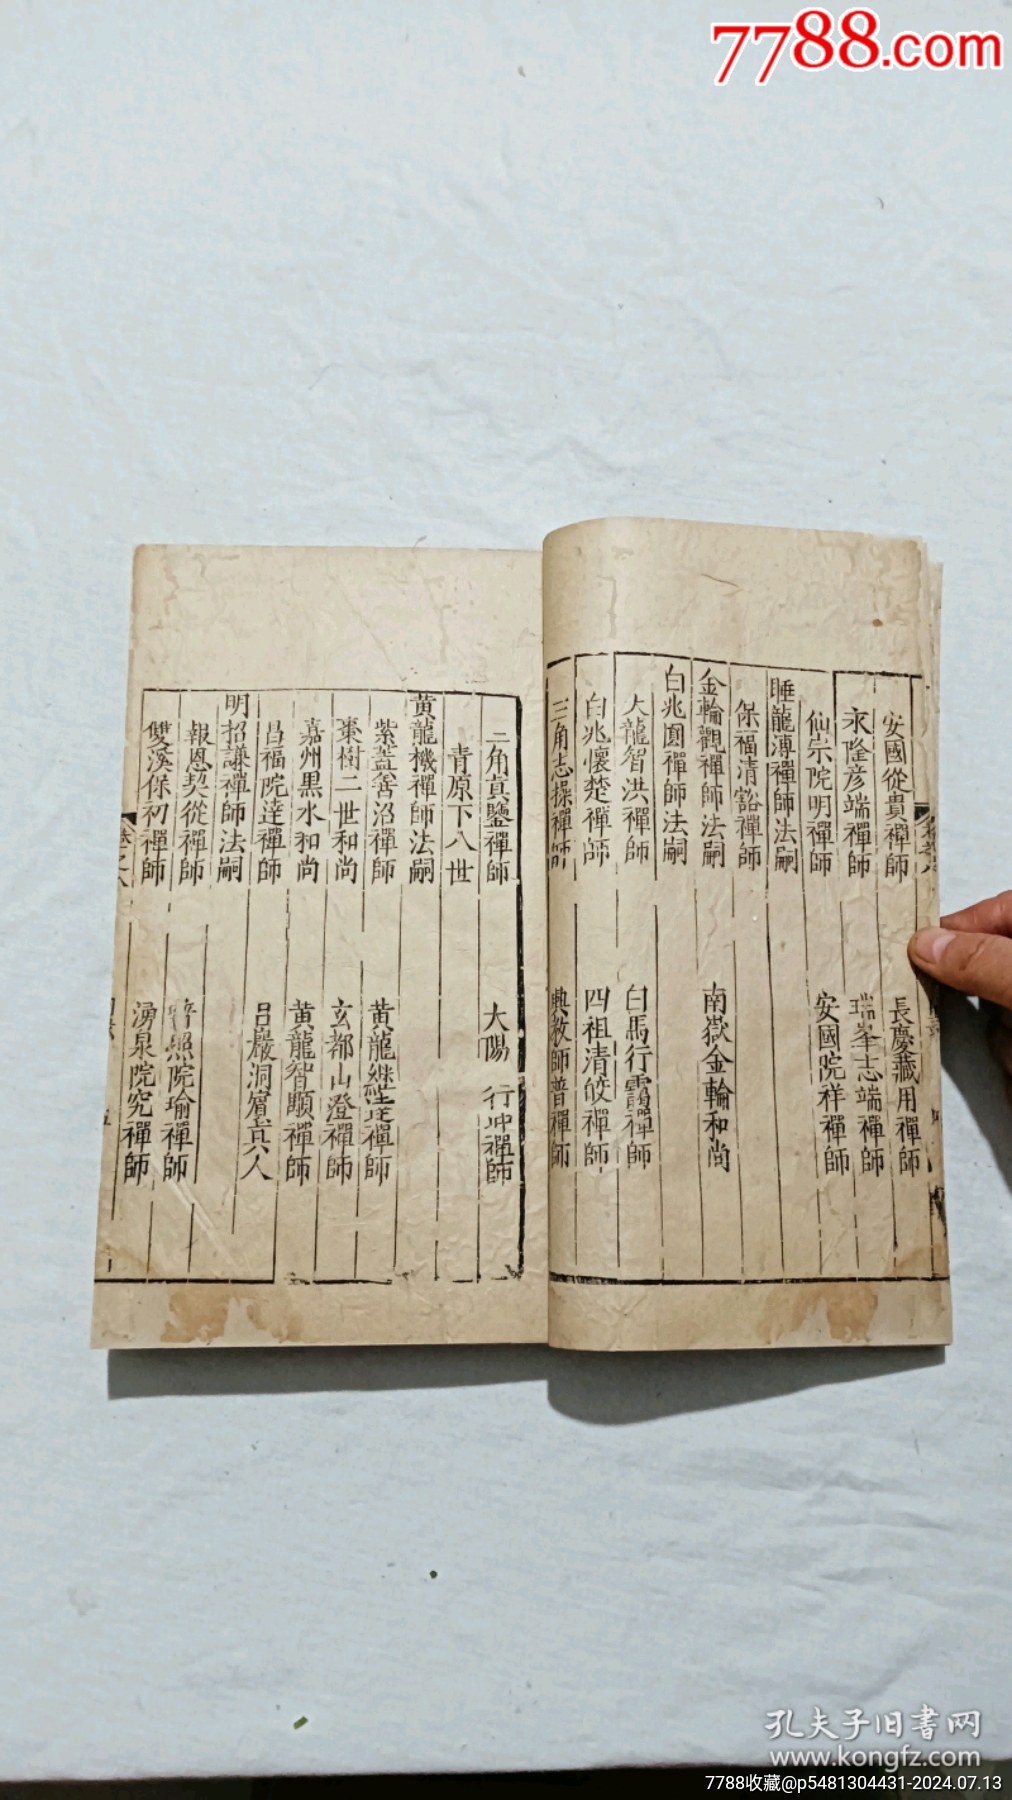 7788.com
安國從貴禪師 長慶藏用禪師
永隆彦端禪師 瑞峯志端禪師
仙宗院明禪師 安國院祥禪師
睡龍溥禪師法嗣
保福清豁禪師
金輪觀禪師法嗣 南嶽金輪和尚
白兆圓禪師法嗣
大龍智洪禪師 白馬行靄禪師
白兆懷楚禪師 四祖清皎禪師
三角志操禪師 興教師普禪師
三角真鑒禪師 大陽行冲禪師
青原下八世
黃龍機禪師法嗣
紫蓋善沼禪師 黃龍繼達禪師
棗樹二世和尚 玄都山澄禪師
嘉州黑水和尚 黃龍智顒禪師
昌福院達禪師 呂巖洞賓真人
明招謙禪師法嗣
報恩契從禪師 普照院瑜禪師
雙溪保初禪師 湧泉院究禪師
卷之八
孔夫子旧書网
www.kongfz.com
7788收藏@p5481304431-2024.07.13